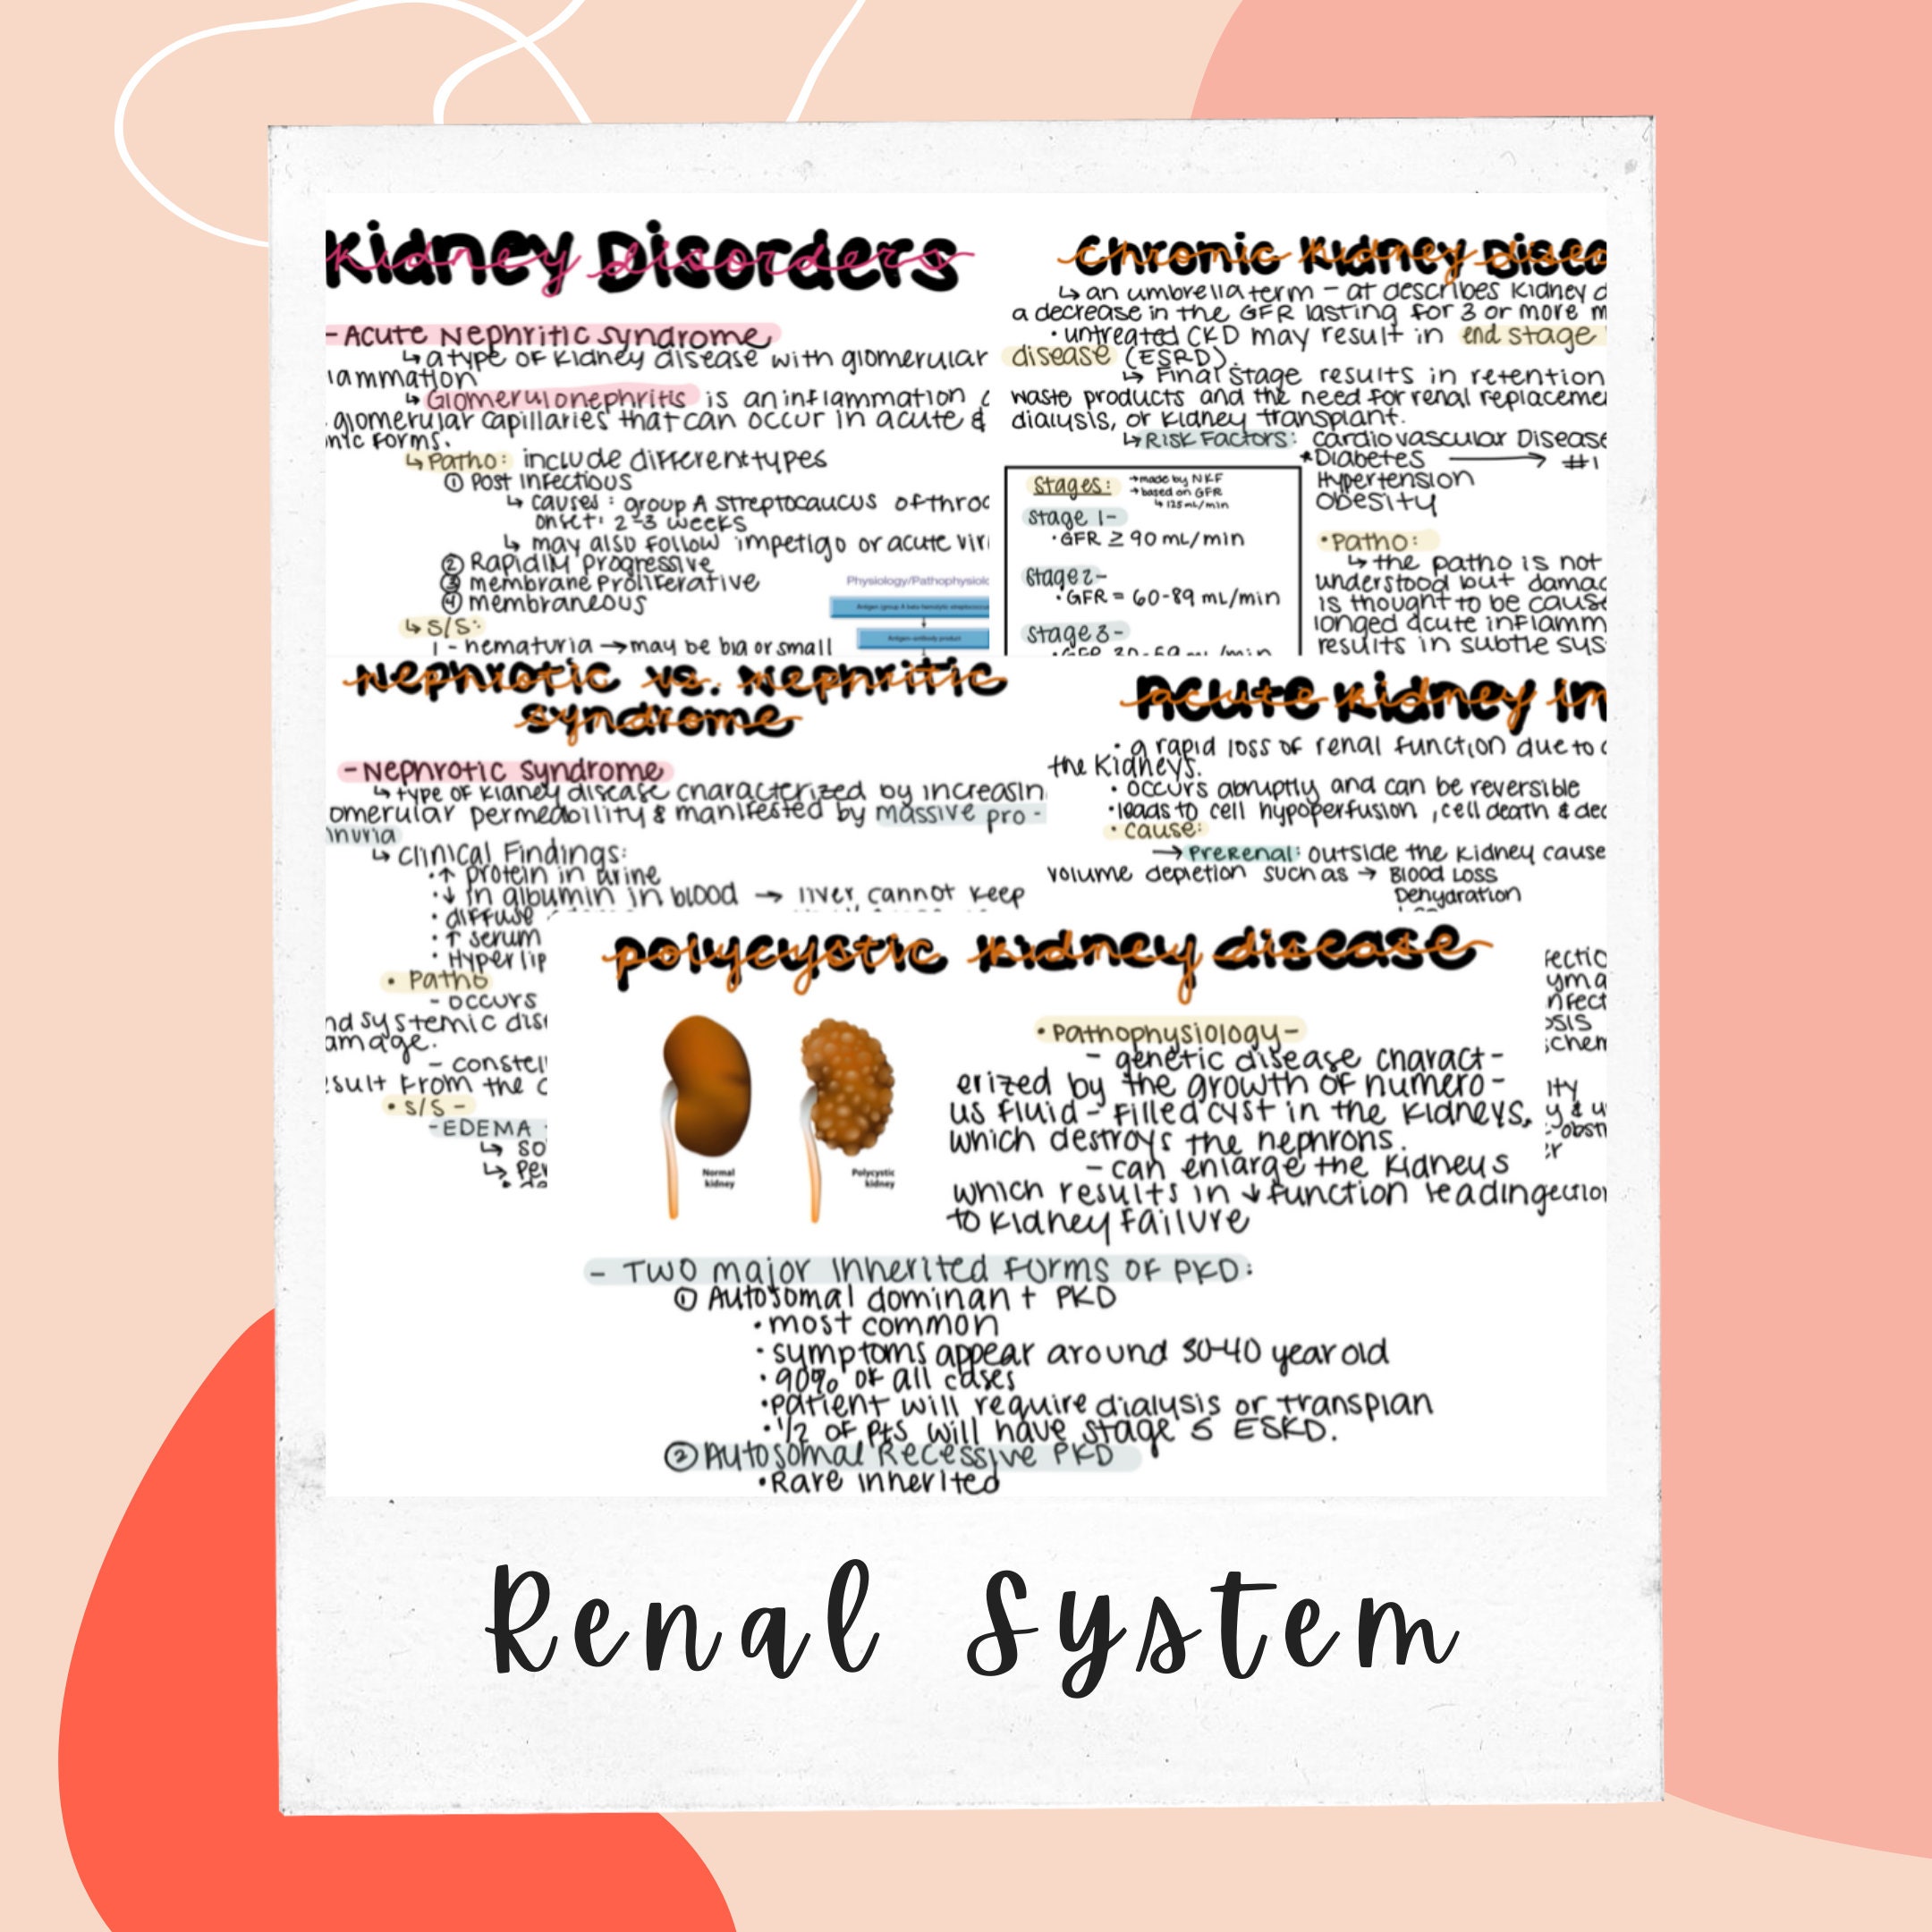 Kidney Disorders
- Acute Nephritic Syndrome
↳ a type of kidney disease with glomerular
ammation
↳ Glomerulonephritis is an inflammation
glomerular capillaries that can occur in acute &
nic forms.
↳ Patho: include different types
① Post Infectious
↳ causes: group A streptocaucus of throa
onset: 2-3 weeks
↳ may also follow impetigo or acute vir
② Rapidly progressive
③ membrane proliferative
④ membraneous
↳ S/S:
- hematuria → may be big or small
Physiology/Pathophysiolo
Antigen (group A beta-hemolytic streptococcus
Antigen-antibody product
Chronic Kidney Disea
↳ an umbrella term - at describes kidney d
a decrease in the GFR lasting for 3 or more m
• untreated CKD may result in end stage
disease (ESRD).
↳ Final stage results in retention
waste products and the need for renal replaceme
dialysis, or kidney transplant.
↳ Risk Factors: Cardiovascular Disease
*Diabetes → #1
Hypertension
Obesity
Stages: → made by NKF
→ based on GFR
↳ 125 mL/min
Stage 1-
• GFR ≥ 90 mL/min
Stage 2-
• GFR = 60-89 mL/min
Stage 3-
• GFR 30-59 mL/min
• Patho:
↳ the patho is not
understood but damag
is thought to be cause
longed acute inflamm
results in subtle sys
Nephrotic vs. Nephritic
Syndrome
- Nephrotic Syndrome
↳ type of kidney disease characterized by increasin
omerular permeability & manifested by massive pro-
inuria
↳ Clinical Findings:
• ↑ protein in urine
• ↓ in albumin in blood → liver cannot keep
• diffuse
• ↑ serum
• Hyperlip
• Patho
- occurs
nd systemic dis
amage.
- constel
esult from the
• S/S -
- EDEMA
↳ so
↳ Per
Acute Kidney In
• a rapid loss of renal function due to
the kidneys.
• occurs abruptly and can be reversible
• leads to cell hypoperfusion, cell death & dec
• cause:
→ PreRenal: outside the kidney cause
volume depletion such as → Blood Loss
Dehydration
fectio
yma
nfect
osis
schem
ity
y & u
-obst
er
ection
polycystic kidney disease
Normal
kidney
Polycystic
kidney
• Pathophysiology-
- genetic disease charact-
erized by the growth of numero-
us fluid-filled cyst in the kidneys,
which destroys the nephrons.
- can enlarge the kidneys
which results in ↓ function leading
to kidney failure
- Two major Inherited forms of PKD:
① Autosomal dominant PKD
• most common
• symptoms appear around 30-40 year old
• 90% of all cases
• patient will require dialysis or transplan
• 1/2 of pts will have stage 5 ESKD.
② Autosomal Recessive PKD
• Rare inherited
Renal System